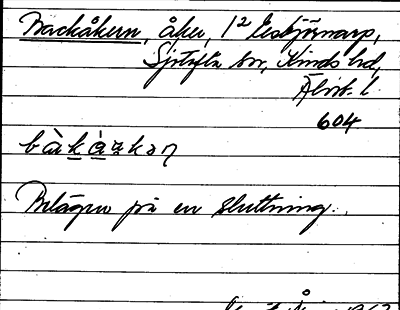 Backåkern, åker, 1² Esbjörnarp,
Sjötofta sn, Kinds hd,
Älvsb. l.
604
bàkå̀ɡkən
Belägen på en sluttning.